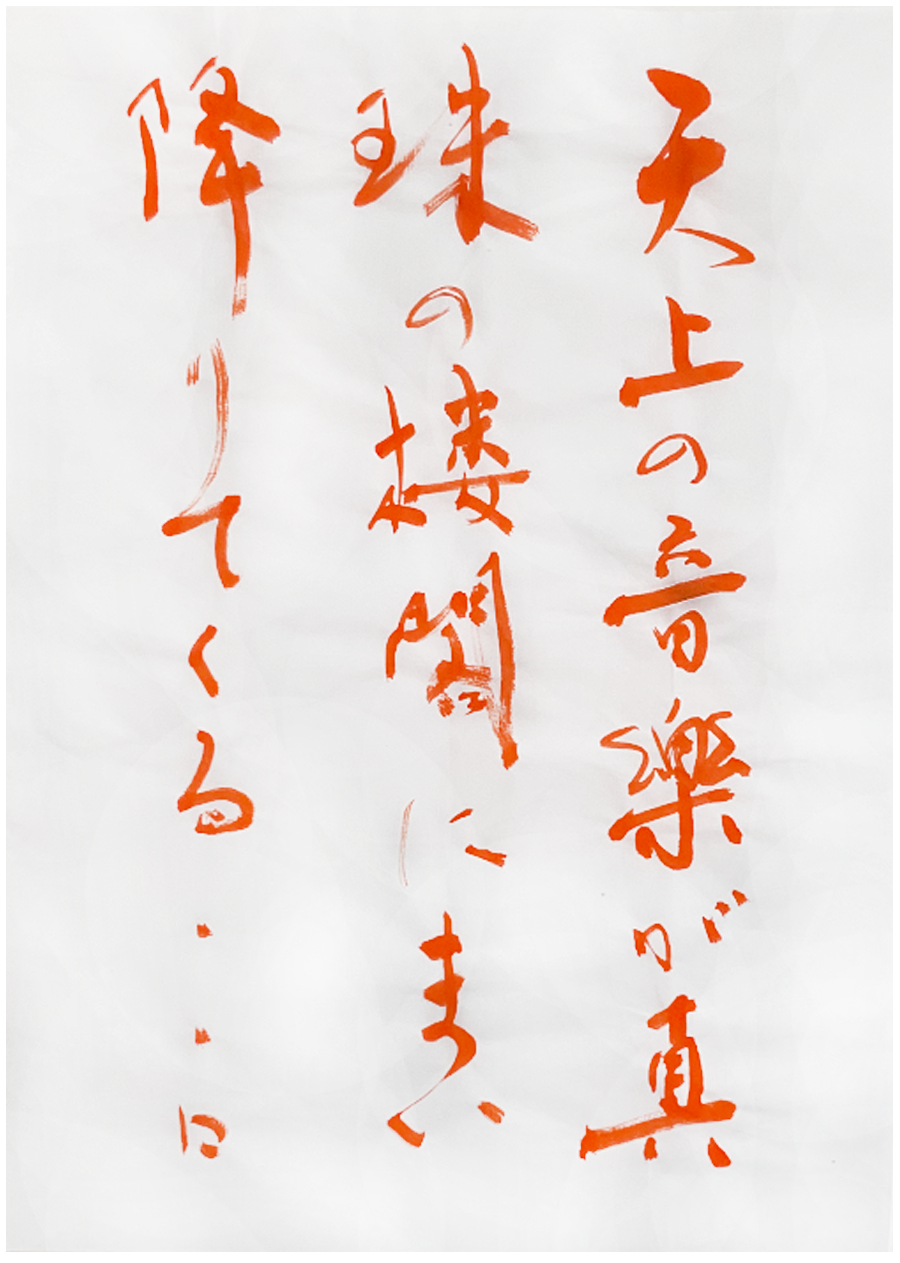 天上の音樂が真
珠の楼閣にまい
降りてくる・・